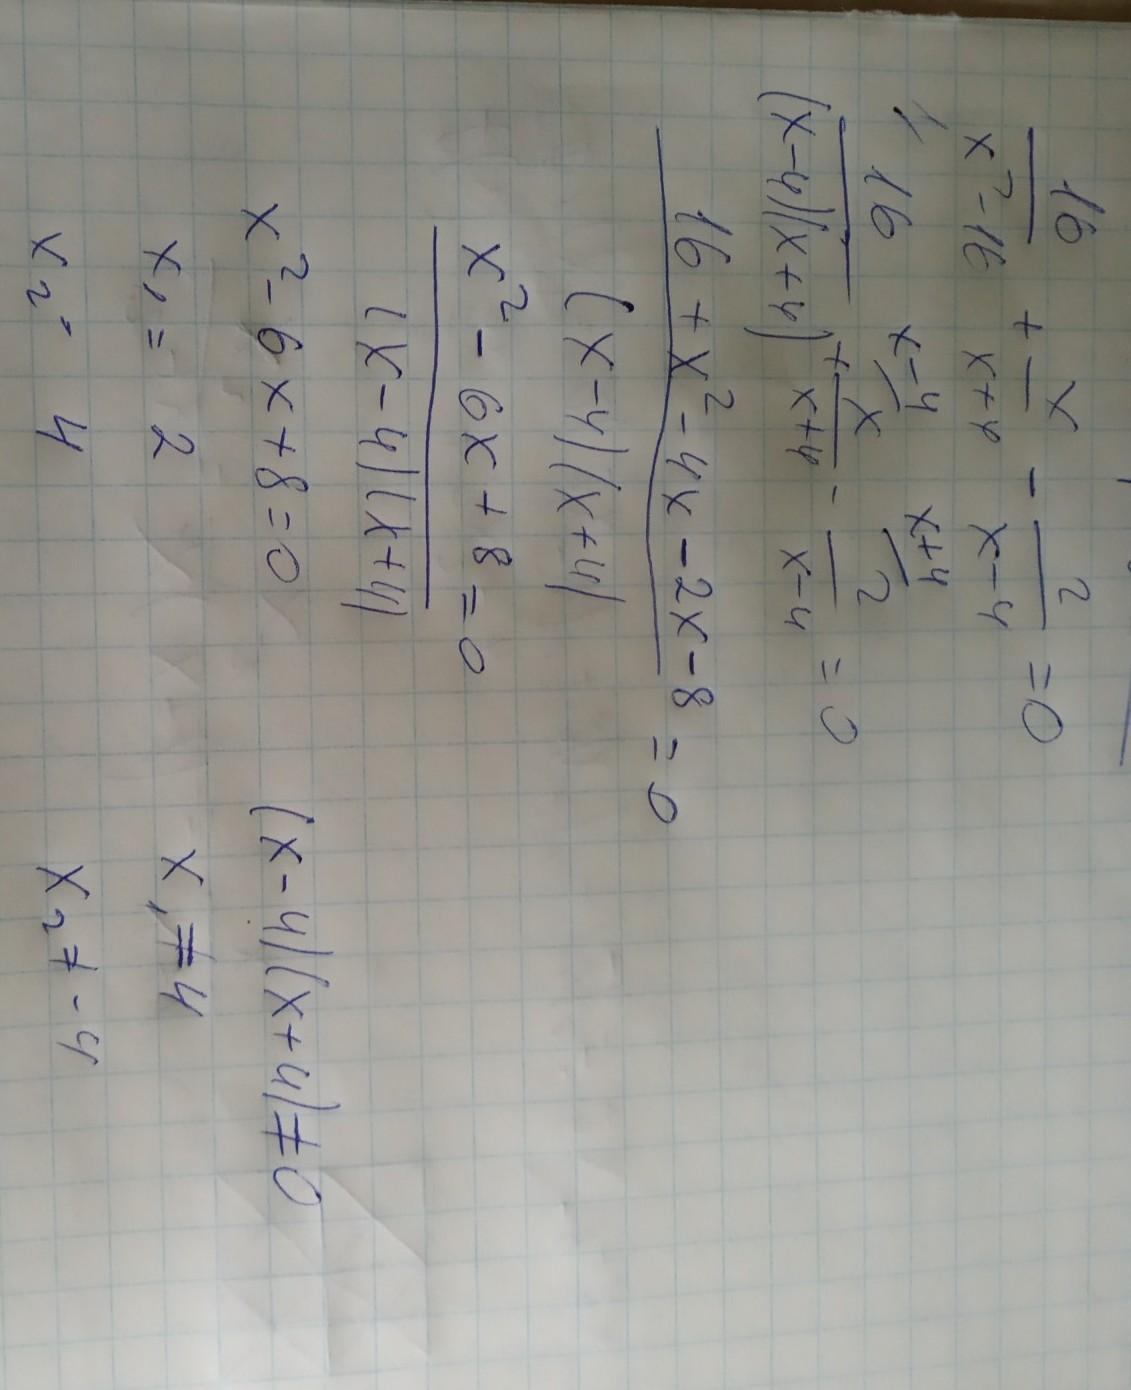 16/(x²-16) + x/(x+4) - 2/(x-4) = 0
16/((x-4)(x+4)) + x/(x+4) - 2/(x-4) = 0
(16 + x² - 4x - 2x - 8)/((x-4)(x+4)) = 0
(x² - 6x + 8)/((x-4)(x+4)) = 0
x² - 6x + 8 = 0 (x-4)(x+4) ≠ 0
x₁ = 2 x₁ ≠ 4
x₂ = 4 x₂ ≠ -4